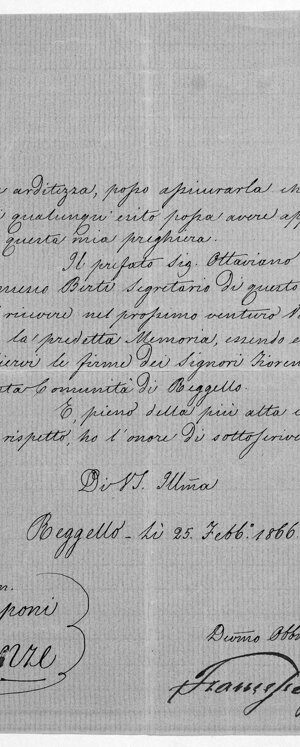 arditezza, posso assicurarla ch
qualunqu' esito possa avere app
questa mia preghiera.
Il prefato Sig. Ottaviano
Berti Segretario di questo
ricevere nel prossimo venturo
la predetta Memoria, essendo e
le firme dei Signori Fioren
Comunità di Reggello.
E pieno della più alta
rispetto, ho l'onore di sottoscrive
Di VS. Illma
Reggello - Li 25. Febb.o 1866.
poni
Devmo Obb
Francesc